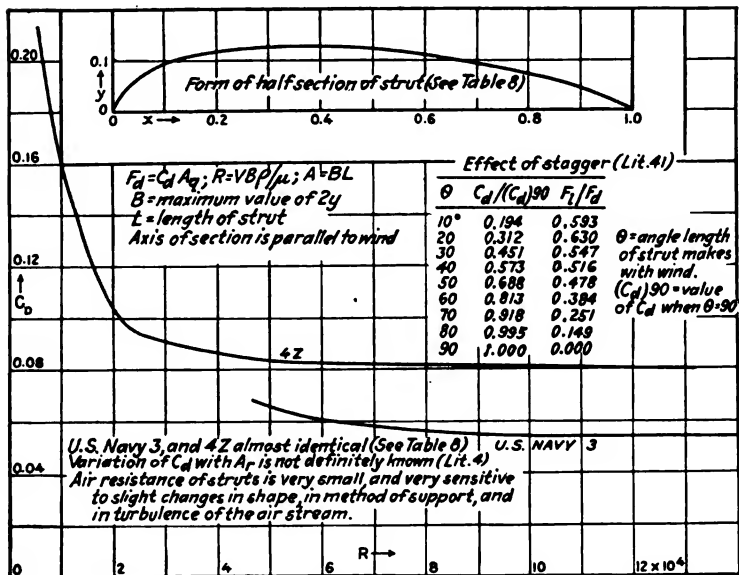 0.20
0.16
0.12
↑
C_D
0.08
0.04
0.1
↑
y
0
Form of half section of strut (See Table 8)
0 x → 0.2 0.4 0.6 0.8 1.0
F_d = C_d A_q; R = VBρ/μ; A = BL
B = maximum value of 2y
L = length of strut
Axis of section is parallel to wind
Effect of stagger (Lit. 41)
θ C_d/(C_d)90 F_l/F_d
10° 0.194 0.593
20 0.312 0.630
30 0.451 0.547
40 0.573 0.516
50 0.688 0.478
60 0.813 0.384
70 0.918 0.251
80 0.995 0.149
90 1.000 0.000
θ = angle length
of strut makes
with wind.
(C_d)90 = value
of C_d when θ=90
4Z
U.S. NAVY 3
U.S. Navy 3, and 4Z almost identical (See Table 8)
Variation of C_d with A_r is not definitely known (Lit. 4)
Air resistance of struts is very small, and very sensitive
to slight changes in shape, in method of support, and
in turbulence of the air stream.
R →
0 2 4 6 8 10 12 × 10⁴